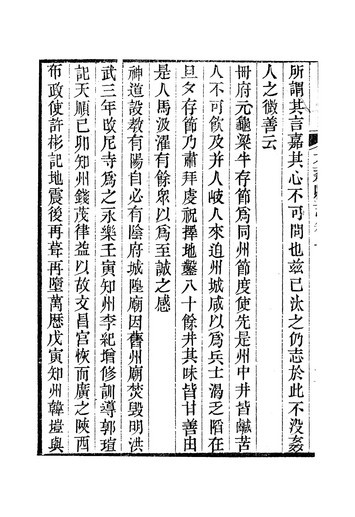 所謂其言嘉其心不可問也茲已汰之仍志於此不沒姦
人之微善云
冊府元龜梁牛存節為同州節度使先是州中井皆鹹苦
人不可飲及幷人岐人來迫州城咸以為兵士渴乏陷在
旦夕存節乃肅拜虔祝擇地鑿八十餘井其味皆甘善由
是人馬汲濯有餘眾以為至誠之感
神道設教有陽自必有陰府城隍廟因舊州廟焚毀明洪
武三年改尼寺為之永樂壬寅知州李紀增修訓導郭瑄
記天順己卯知州錢茂律益以故文昌宫恢而廣之陝西
布政使許彬記地震後再葺再墮萬歷戊寅知州韓壋與